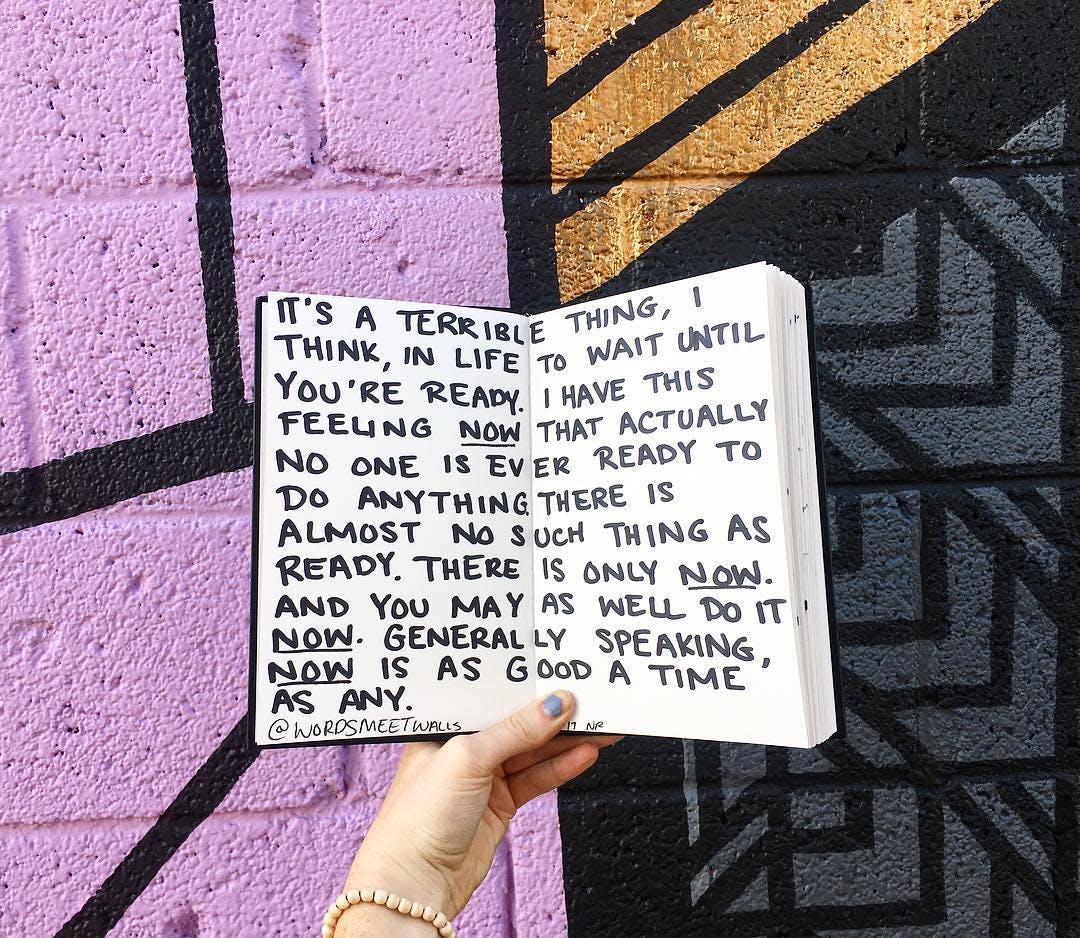 IT'S A TERRIBLE THING, I
THINK, IN LIFE TO WAIT UNTIL
YOU'RE READY. I HAVE THIS
FEELING NOW THAT ACTUALLY
NO ONE IS EVER READY TO
DO ANYTHING. THERE IS
ALMOST NO SUCH THING AS
READY. THERE IS ONLY NOW.
AND YOU MAY AS WELL DO IT
NOW. GENERALLY SPEAKING,
NOW IS AS GOOD A TIME
AS ANY.
@WORDSMEETWALLS 17 NR